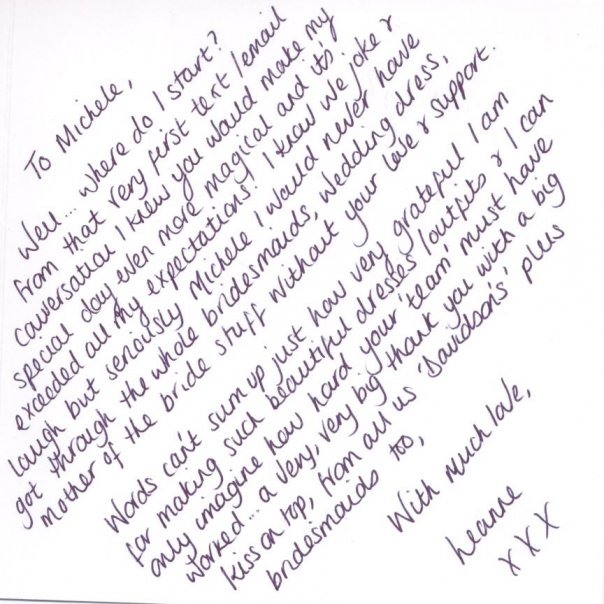 To Michele,
Well... where do I start?
From that very first text/email
conversation I knew you would make my
special day even more magical and its'
exceeded all my expectations! I know we joke &
laugh but seriously Michele I would never have
got through the whole bridesmaids, wedding dress,
mother of the bride stuff without your love & support.
Words can't sum up just how very grateful I am
for making such beautiful dresses/outfits & I can
only imagine how hard your 'team' must have
worked... a very, very big thank you with a big
kiss on top, from all us 'Davidson's', plus
bridesmaids too,
With Much love,
Leanne
x x x